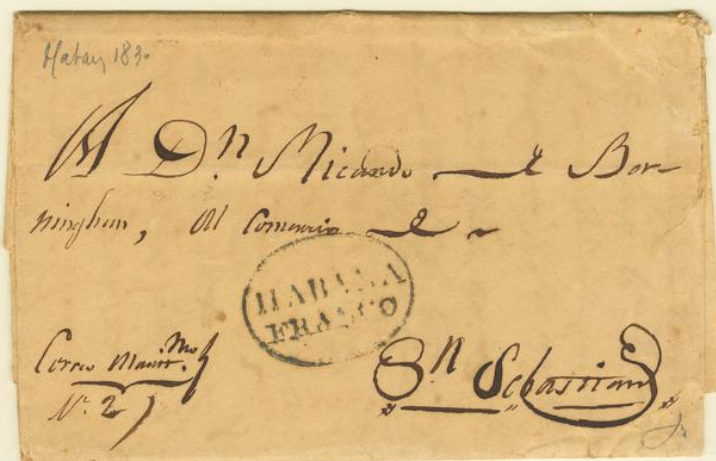 A Dn Ricardo de Ber-
mingham, del Comercio de
HABANA
FRANCO
Correo Marit.mo
N.2
Sn Sebastian